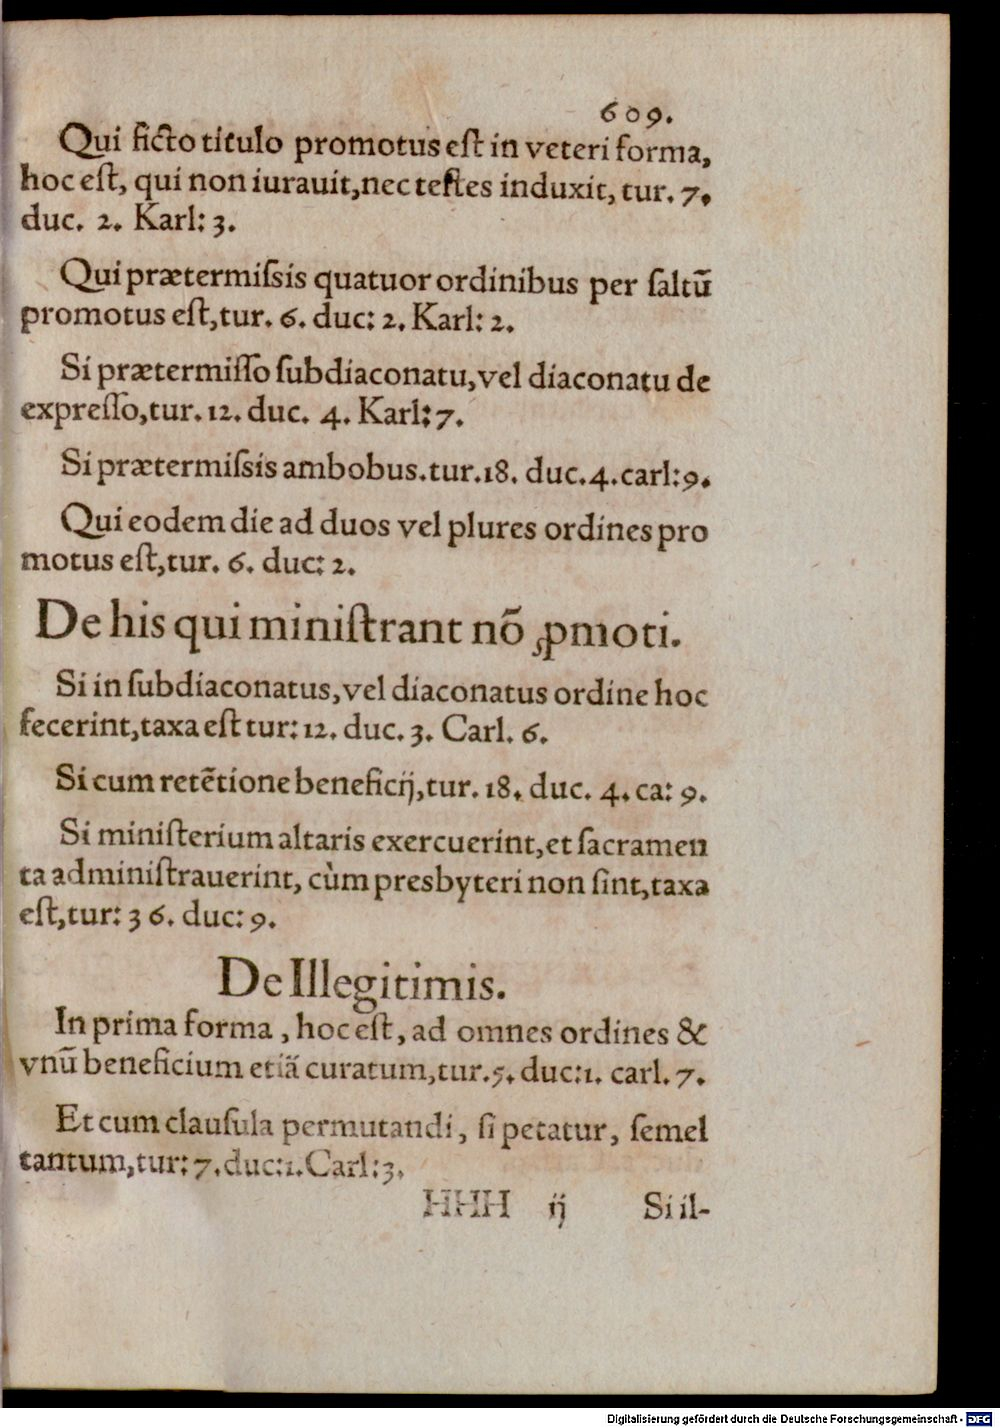 609.
Qui ficto titulo promotus eſt in veteri forma,
hoc eſt, qui non iurauit, nec teſtes induxit, tur. 7.
duc. 2. Karl: 3.
Qui prætermiſsis quatuor ordinibus per ſaltū
promotus eſt, tur. 6. duc: 2. Karl: 2.
Si prætermiſſo ſubdiaconatu, vel diaconatu de
expreſſo, tur. 12. duc. 4. Karl: 7.
Si prætermiſsis ambobus. tur. 18. duc. 4. carl: 9.
Qui eodem die ad duos vel plures ordines pro
motus eſt, tur. 6. duc: 2.
De his qui miniſtrant nō ꝓmoti.
Si in ſubdiaconatus, vel diaconatus ordine hoc
fecerint, taxa eſt tur: 12. duc. 3. Carl. 6.
Si cum retētione beneficij, tur. 18. duc. 4. ca: 9.
Si miniſterium altaris exercuerint, et ſacramen
ta adminiſtrauerint, cùm presbyteri non ſint, taxa
eſt, tur: 36. duc: 9.
De Illegitimis.
In prima forma, hoc eſt, ad omnes ordines &
vnū beneficium etiā curatum, tur. 5. duc: 1. carl. 7.
Et cum clauſula permutandi, ſi petatur, ſemel
tantum, tur: 7. duc: 1. Carl: 3.
HHH ij Si il-
Digitalisierung gefördert durch die Deutsche Forschungsgemeinschaft - DFG